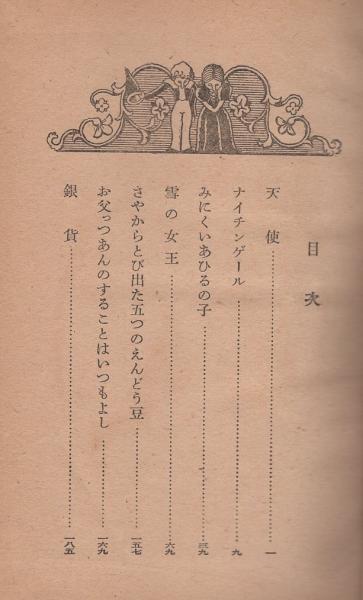 目次
天使……一
ナイチンゲール……九
みにくいあひるの子……三九
雪の女王……六九
さやからとび出た五つのえんどう豆……一五七
お父っつあんのすることはいつもよし……一六九
銀貨……一八五